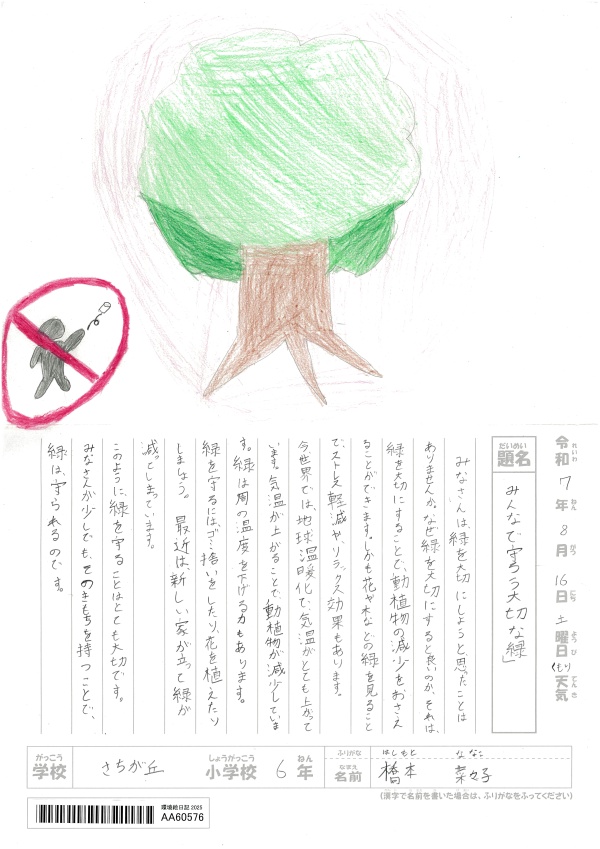 令和7年8月16日土曜日(もり)天気
れいわ ねん がつ にち ようび てんき
だいめい
題名
みんなで守ろう大切な緑」
みなさんは、緑を大切にしようと思ったことは
ありませんか。なぜ緑を大切にすると良いのか、それは、
緑を大切にすることで、動植物の減少をおさえ
ることができます。しかも花や木などの緑を見ること
で、ストレス軽減やリラックス効果もあります。
今世界では、地球温暖化で、気温がとても上がって
います。気温が上がることで、動植物が減少していま
す。緑は周の温度を下げる力もあります。
緑を守るには、ゴミ捨いをしたり、花を植えたり
しましょう。 最近は、新しい家が立って緑が
減ってしまっています。
このように、緑を守ることはとても大切です。
みなさんが少しでも、そのきもちを持つことで、
緑は、守られるのです。
がっこう
学校
さちが丘
しょうがっこう
小学校
6
ねん
年
ふりがな
はしもと ななこ
なまえ
名前
橋本 菜々子
(漢字で名前を書いた場合は、ふりがなをふってください)
環境絵日記 2025
AA60576